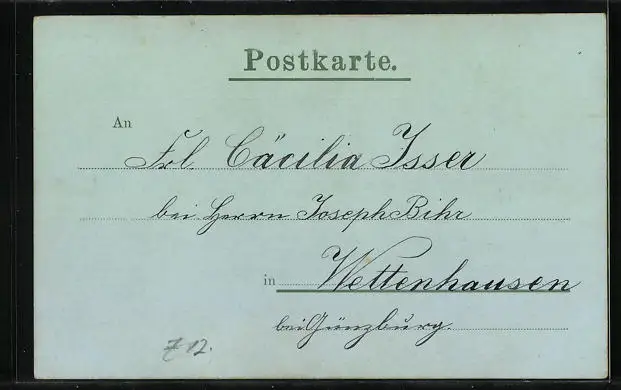 Postkarte.
An
Frl. Cäcilia Isser
bei Herrn Joseph Bihr
in Wettenhausen
bei Günzburg.
712.